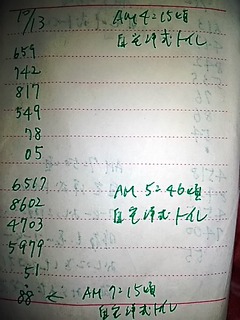 10/13 AM 4=15頃
自宅洋式トイレ
659
742
817
549
78
05
6517
8602 AM 5=46頃
4703 自宅洋式トイレ
5979
51
88 ← AM 7=15頃
自宅洋式トイレ